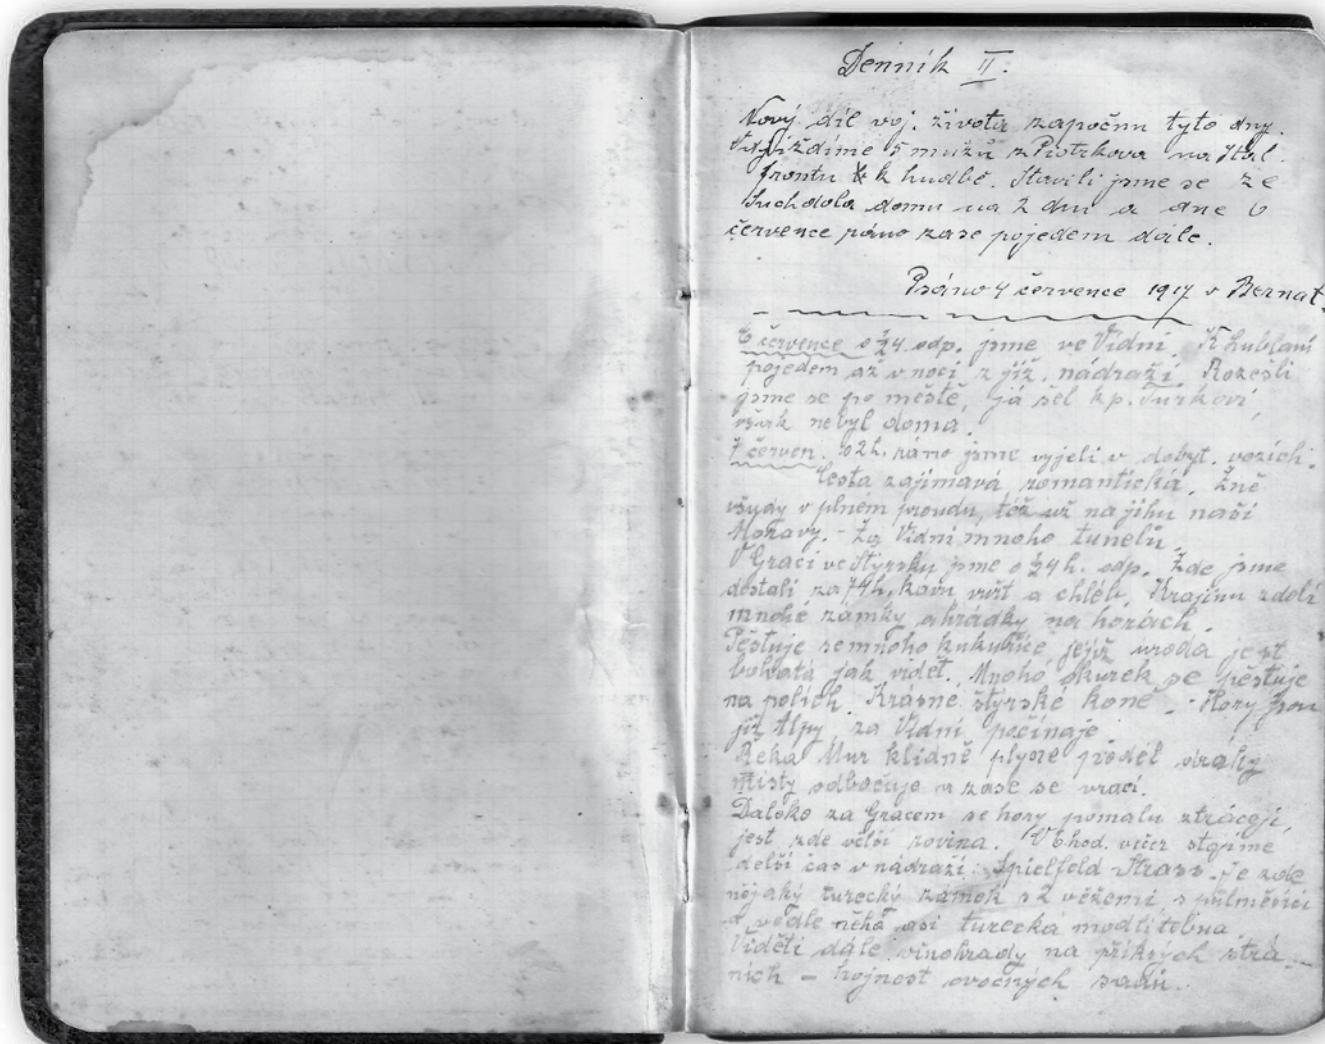 Denník II.
Nový díl voj. života započnu tyto dny.
Vyjíždíme 5 mužů z Piotrkova na Ital.
frontu k hudbě. Stavili jsme se ze
Suchdola domu na 2 dni a dne 6
července ráno zase pojedem dále.
Psáno 4 července 1917 v Bernat.
6 července o ½4 odp. jsme ve Vídni. K Lublani
pojedem až v noci z již. nádraží. Rozešli
jsme se po městě, já šel k p. Turkovi,
však nebyl doma.
7 červen. o 2h. ráno jsme vyjeli v dobyt. vozích.
Cesta zajímavá romantická. Žně
všudy v plném proudu, též už na jihu naší
Moravy. - Za Vídní mnoho tunelů.
V Graci ve Štýrsku jsme o ½4 h. odp. Zde jsme
dostali za 74h. kávu vuřt a chléb. Krajinu zdobí
mnohé zámky a hrádky na horách.
Pěstuje se mnoho kukuřice jejíž úroda jest
bohatá jak vidět. Mnoho okurek se pěstuje
na polích. Krásné štyrské koně. - Hory jsou
již Alpy za Vídní počínaje.
Řeka Mur klidně plyne podél dráhy
místy odbočuje a zase se vrací.
Daleko za Gracem se hory pomalu ztrácejí,
jest zde větší rovina. V 6 hod. večer stojíme
delší čas v nádraží: Spielfeld Strass. Je zde
nějaký turecký zámek s 2 věžemi s půlměsíci
a vedle něho asi turecká modlitebna
Viděti dále vinohrady na příkrých strá-
ních - hojnost ovocných sadů.